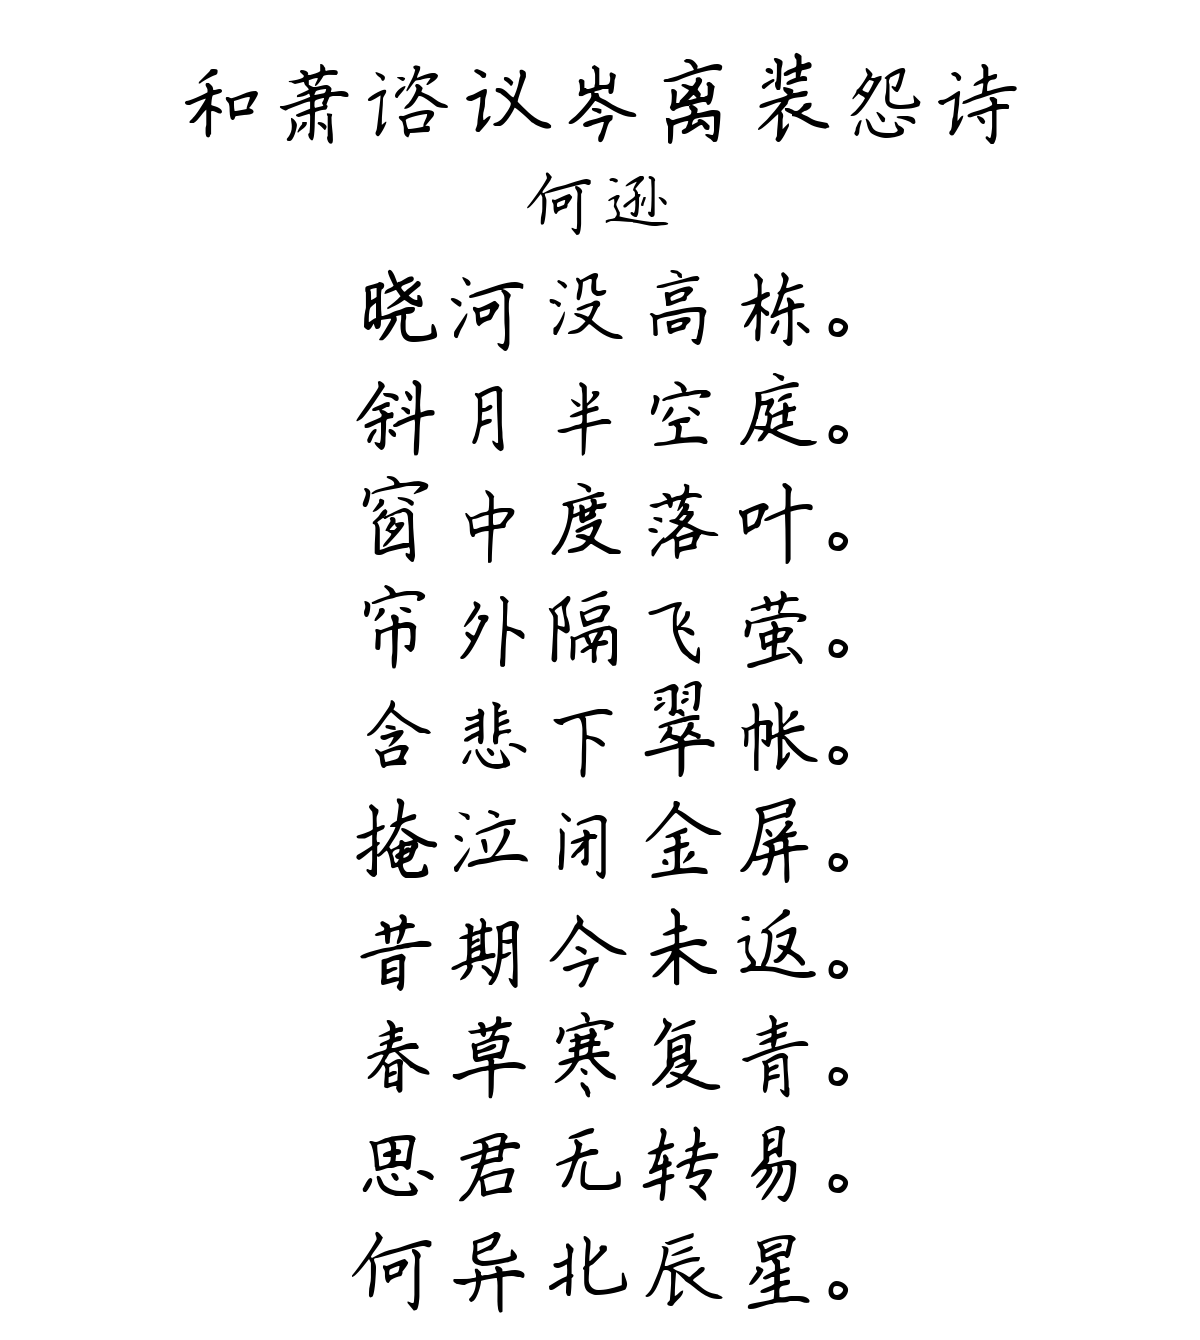 和萧谘议岑离装怨诗
何逊
晓河没高栋。
斜月半空庭。
窗中度落叶。
帘外隔飞萤。
含悲下翠帐。
掩泣闭金屏。
昔期今未返。
春草寒复青。
思君无转易。
何异北辰星。